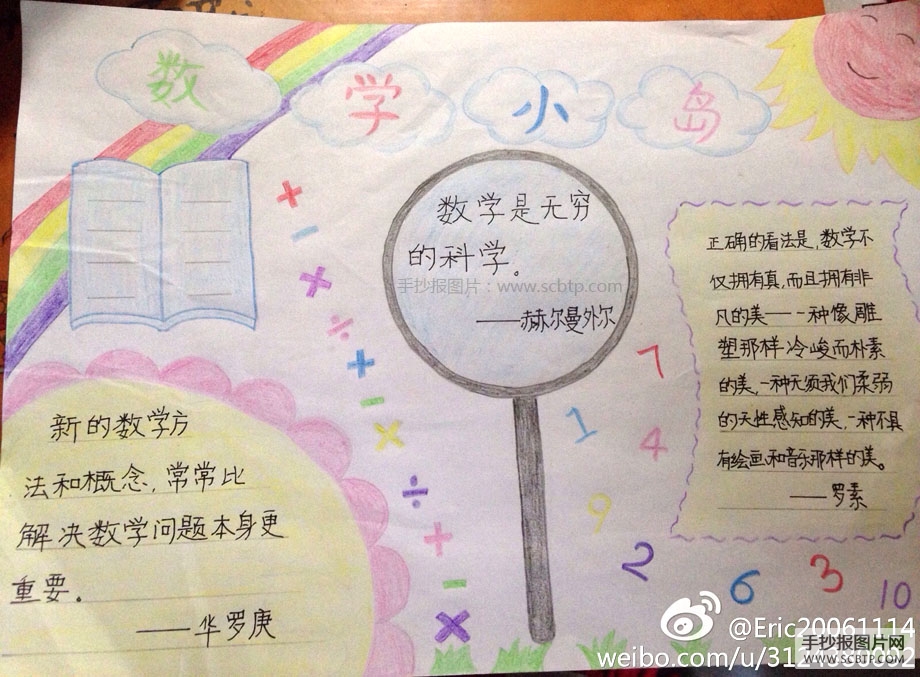 数学小岛
数学是无穷
的科学。
手抄报图片：www.scbtp.com
——赫尔曼外尔
正确的看法是，数学不
仅拥有真，而且拥有非
凡的美——一种像雕
塑那样冷峻而朴素
的美，一种无须我们柔弱
的天性感知的美，一种不具
有绘画和音乐那样的美。
——罗素
新的数学方
法和概念，常常比
解决数学问题本身更
重要。
——华罗庚
+
−
×
÷
+
−
×
÷
+
−
×
7
1
4
9
2
6
3
10
@Eric20061114
weibo.com/u/3124
手抄报图片网
WWW.SCBTP.COM